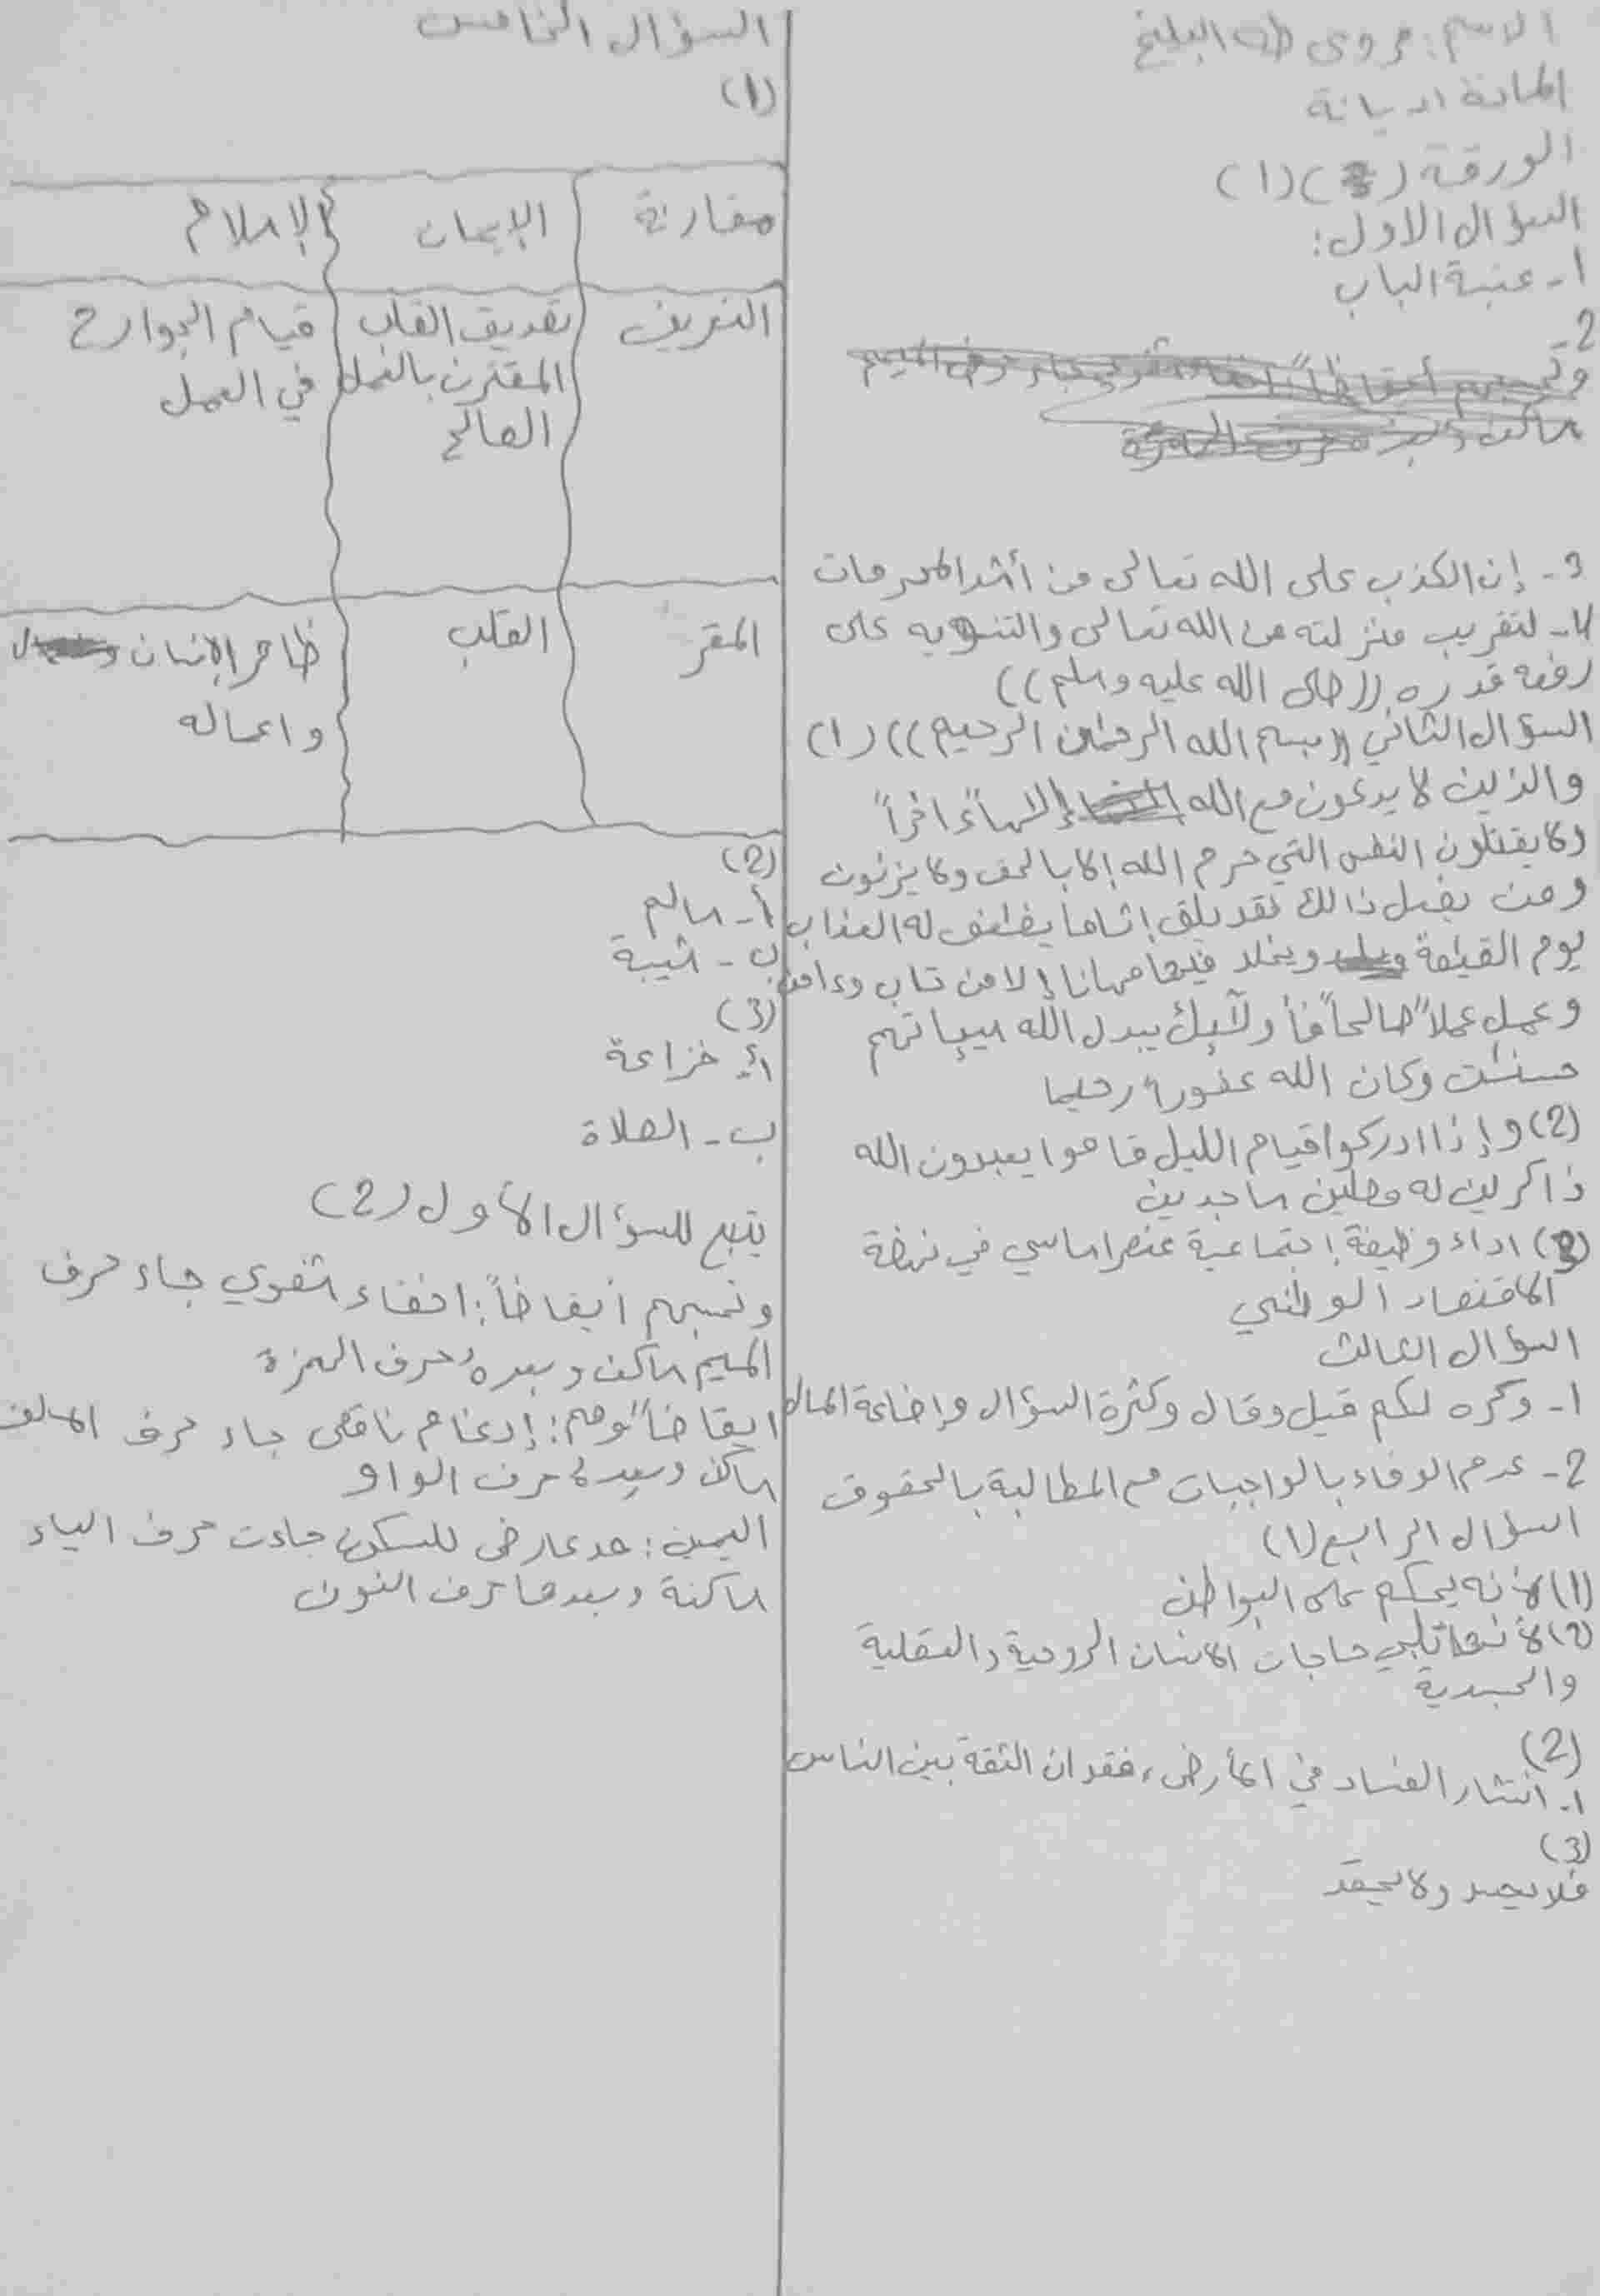 الاسم: مروى طه البليخ
المادة الديانة
الورقة (1)
السؤال الاول:
1- عتبة الباب
2-
3- إن الكذب على الله تعالى من أشد المحرمات
4- لتقريب منزلته من الله تعالى والتنويه على
رفعه قدره ((صلى الله عليه وسلم))
السؤال الثاني ((بسم الله الرحمن الرحيم)) (1)
والذين لا يدعون مع الله إلهاً ءاخراً
ولا يقتلون النفس التي حرم الله إلا بالحق ولا يزنون
ومن يفعل ذالك يلق اثاما يضعف له العذاب
يوم القيمة ويخلد فيها مهانا إلا من تاب وءامن
وعمل عملاً صالحاً فأولئك يبدل الله سيئاتهم
حسنت وكان الله غفوراً رحيما
(2) وإذا ادركوا قيام الليل قاموا يعبدون الله
ذاكرين له مصلين ساجدين
(3) اداء وظيفة اجتماعية عنصر اساسي في نهضة
الاقتصاد الوطني
السؤال الثالث
1- وكره لكم قيل وقال وكثرة السؤال وإضاعة المال
2- عدم الوفاء بالواجبات مع المطالبة بالحقوق
السؤال الرابع (1)
(1) لأنه يحكم على البواطن
(2) لأنها تلبي حاجات الانسان الروحية والعقلية
والجسدية
(2)
1- انتشار الفساد في الأرض، فقدان الثقة بين الناس
(3)
فلا يحسد ولا يحقد
السؤال الخامس
(1)
مقارنة الإيمان الإسلام
التعريف تصديق القلب قيام الجوارح
المقترن بالعمل في العمل
الصالح
المقر القلب ظاهر الإنسان
واعماله
(2)
أ- سالم
ب- شيبة
(3)
أ- خزاعة
ب- الصلاة
يتبع للسؤال الأول (2)
وتحسبهم أيقاظاً: اخفاء شفوي جاء حرف
الميم ساكن وبعده حرف الهمزة
ايقاظاً وهم: إدغام ناقص جاء حرف الالف
ساكن وبعده حرف الواو
اليمين: مد عارض للسكون جاءت حرف الياء
ساكنة وبعدها حرف النون